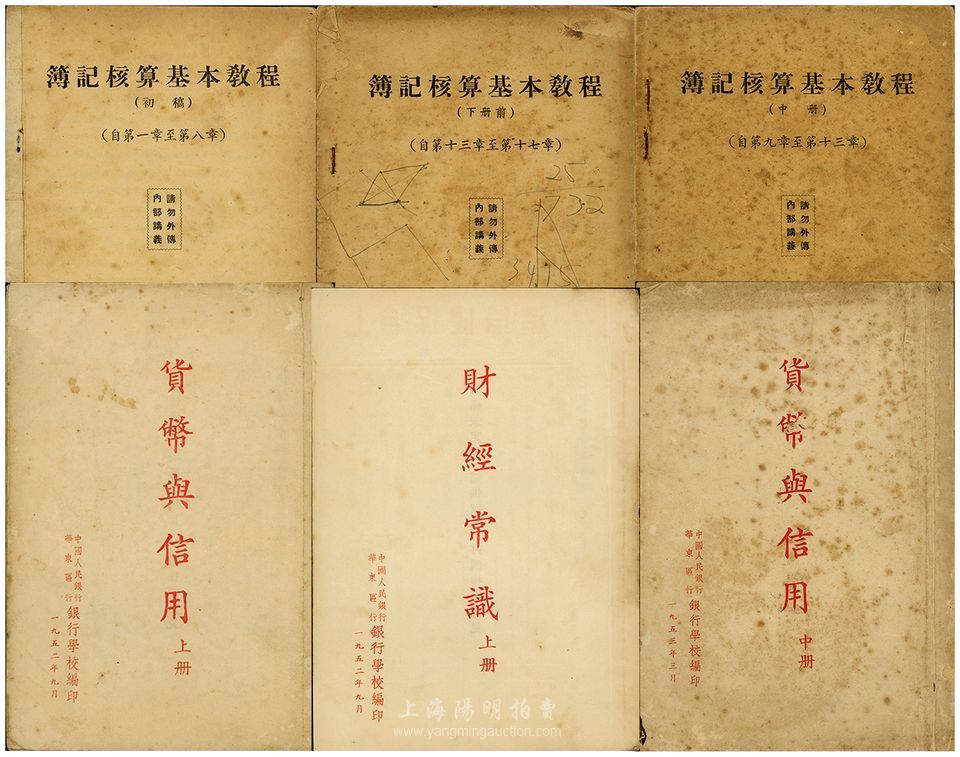 簿記核算基本教程
(初稿)
(自第一章至第八章)
請勿外傳
內部講義
簿記核算基本教程
(下册前)
(自第十三章至第十七章)
請勿外傳
內部講義
25
32
34.15
簿記核算基本教程
(中册)
(自第九章至第十三章)
請勿外傳
內部講義
貨幣與信用
上册
中國人民銀行
華東區行
銀行學校編印
一九五二年九月
財經常識
上册
中國人民銀行
華東區行
銀行學校編印
一九五二年九月
貨幣與信用
中册
中國人民銀行
華東區行
銀行學校編印
一九五三年三月
上海陽明拍賣
www.yangmingauction.com